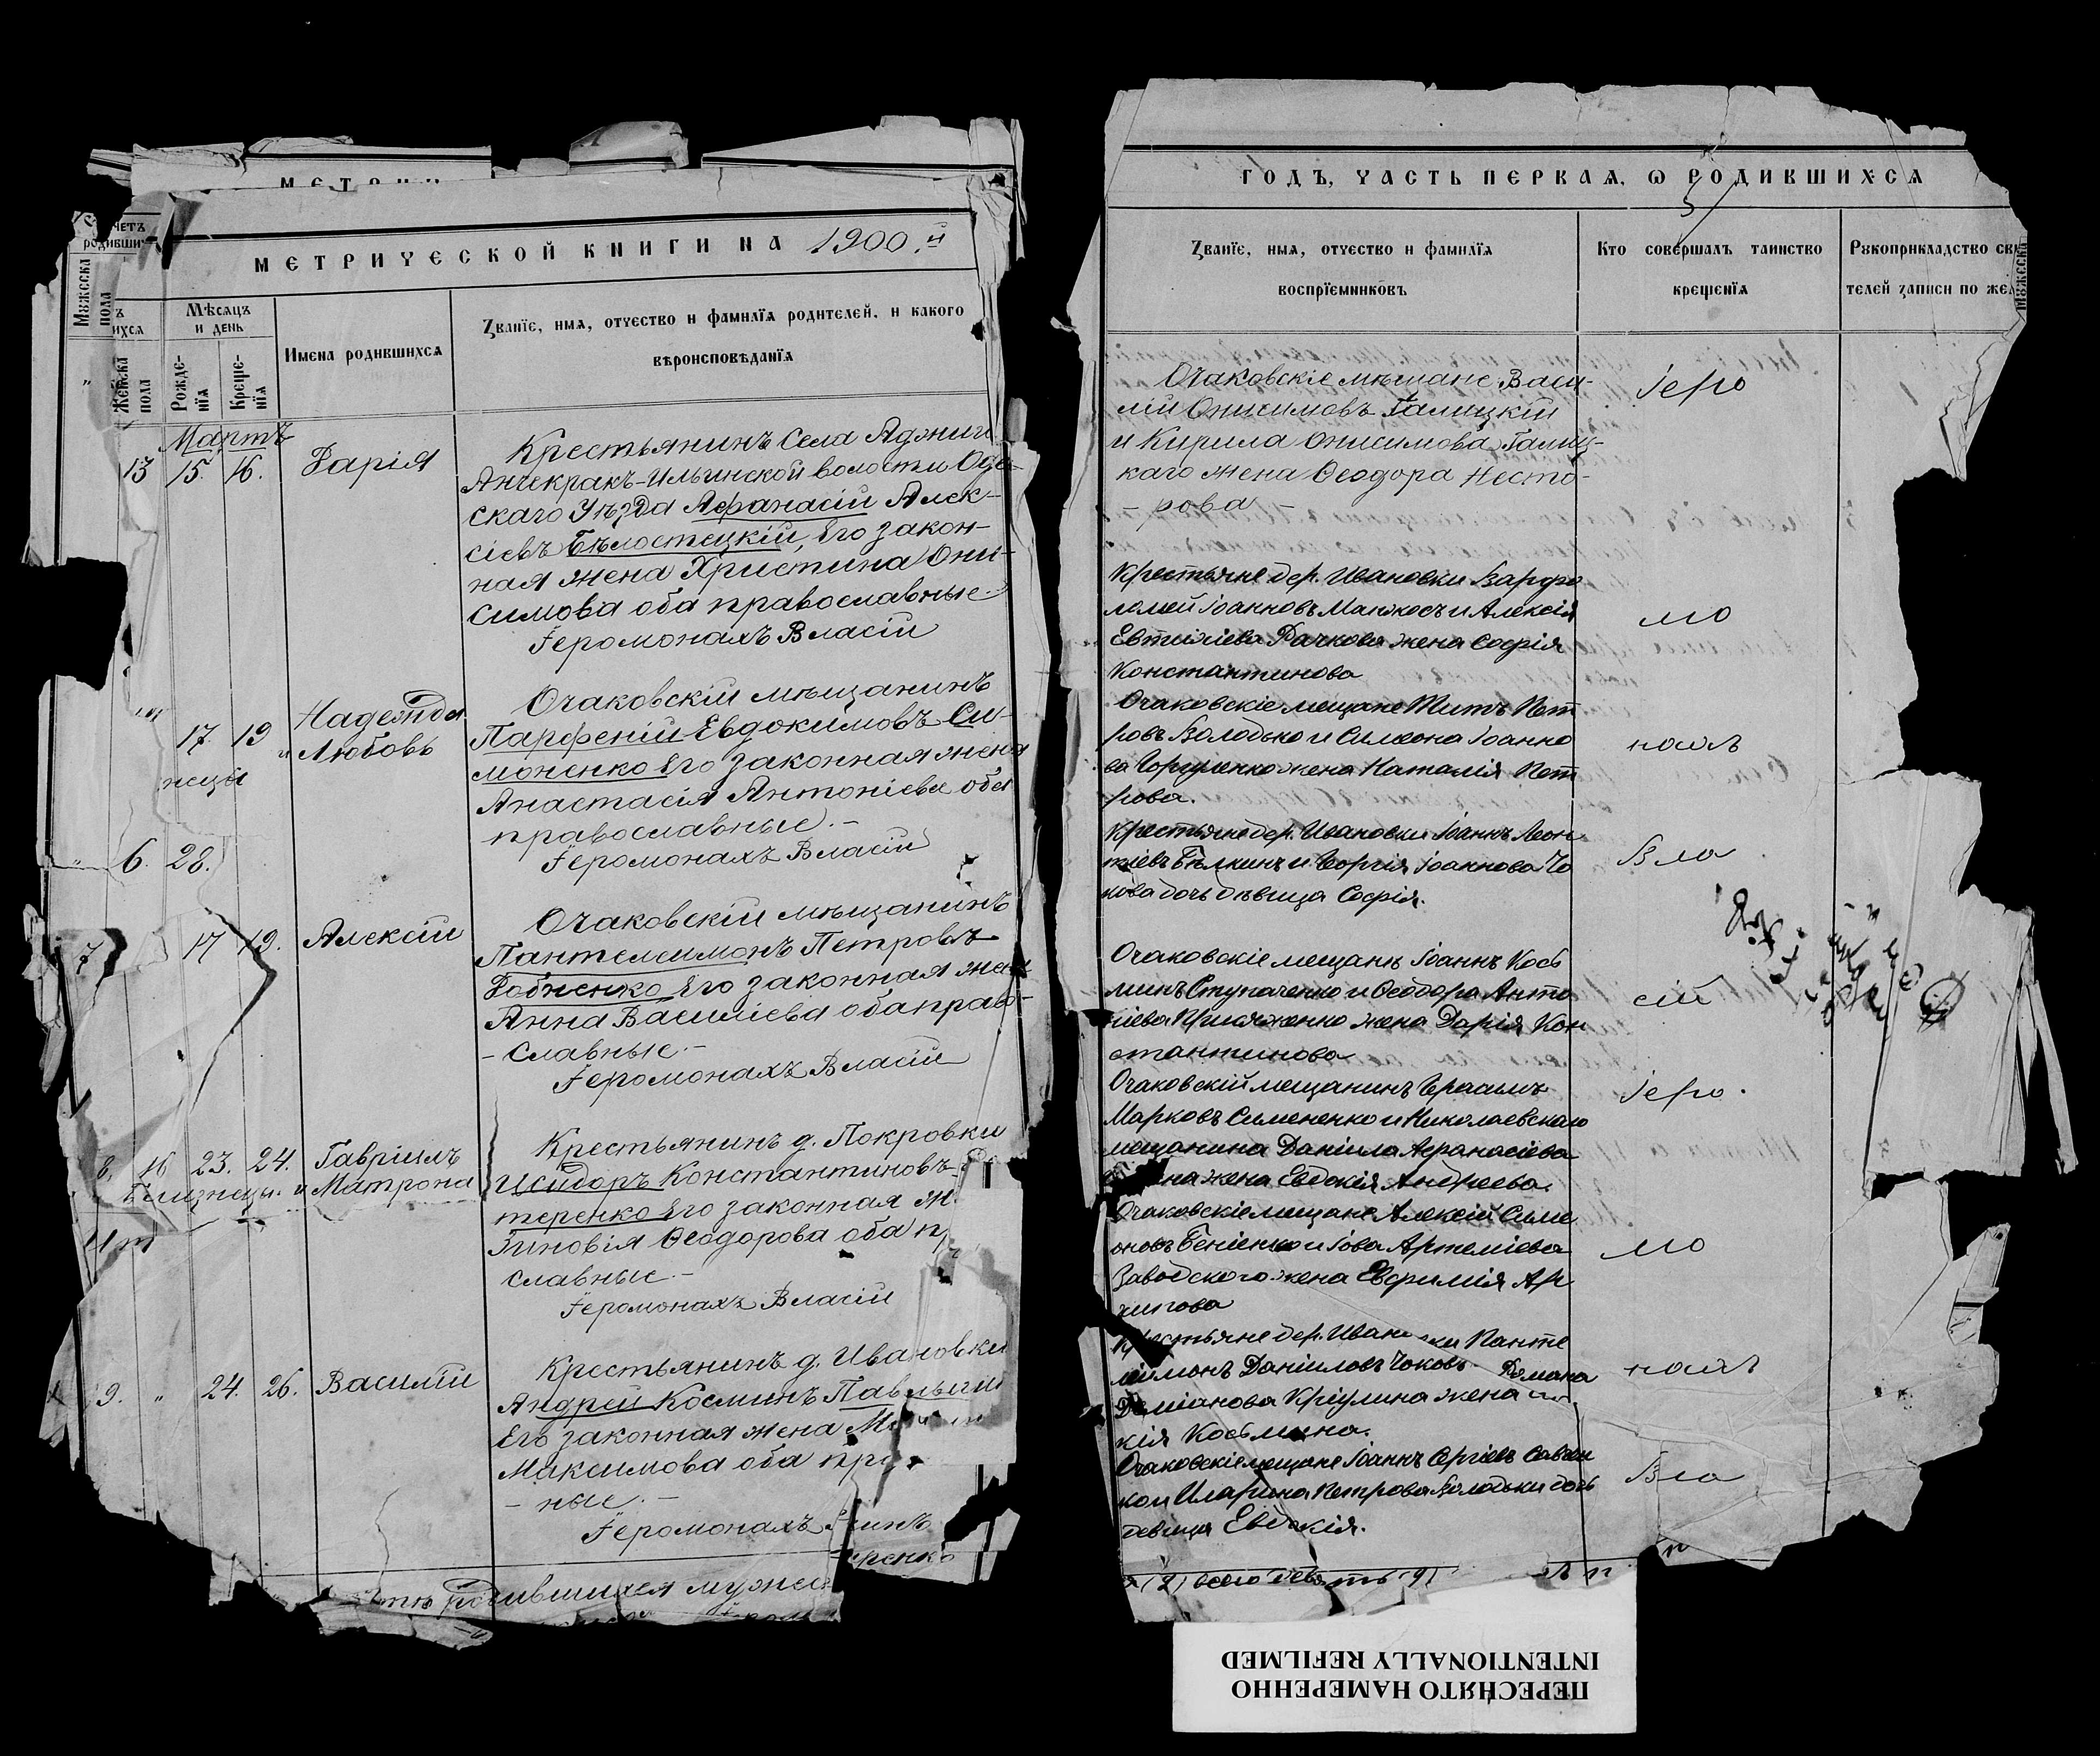 МЕТРИЧЕСКОЙ КНИГИ НА 1900.й
Мужеска пола
Женска пола
Мѣсяцъ и день
Рожденїя
Крещенїя
Имена родившихся
Званїе, имя, отчество и фамилїя родителей, и какого
вѣроисповѣданїя
Мартъ
13 15. 16. Дарія
Крестьянинъ Села Аджиги
Анчекракъ-Ильинской волости Одес-
скаго Уѣзда Афанасій Алек-
сіевъ Бѣлостецкій, Его закон-
ная жена Христина Они-
симова оба православные.
Іеромонахъ Власій
17. 19 Надежда
и Любовь
Очаковскій мѣщанинъ
Парфеній Евдокимовъ Си-
моненко Его законная жена
Анастасія Антоніева оба
православные.-
Іеромонахъ Власій
6. 28.
7 17 19. Алексій
Очаковскій мѣщанинъ
Пантелеимонъ Петровъ
Его законная жена
Анна Василіева оба право-
- славные.-
Іеромонахъ Власій
8. 16 23. 24. Гавріилъ
Близнецы. и Матрона
Крестьянинъ д. Покровки
Исидоръ Константиновъ
теренко Его законная ж
Зиновія Ѳеодорова оба п
славные.-
Іеромонахъ Власій
9. " 24. 26. Василій
Крестьянинъ д. Ивановки
Андрей Косминъ
Его законная жена
Максимова оба пра
- ные.-
Іеромонахъ
родившихся мужес
ГОДЪ, ЧАСТЬ ПЕРВАЯ, Ѡ РОДИВШИХСЯ
Званїе, имя, отчество и фамилїя
воспрїемниковъ
Кто совершалъ таинство
крещенїя
Рукоприкладство сви
телей записи по жел
Очаковскіе мѣщане Васи-
лій Онисимовъ Галицкій
и Кирила Онисимова Галиц-
каго жена Ѳеодора Несто-
- рова -
Іеро
Крестьяне дер. Ивановки Варфо
ломей Іоанновъ и Алексія
Евтихіева жена Софія
Константинова
мо
Очаковскіе мещане Титъ Пет
ровъ Володько и Симеона Іоанно
ва жена Наталія Пет
рова.
нахъ
Крестьяне дер. Ивановки Іоаннъ Леон
тіевъ Бѣлкинъ и Георгія Іоаннова Чо
кова дочь дѣвица Софія.
Вла
Очаковскіе мещане Іоаннъ Косъ
минъ Ступаченко и Ѳеодора Анто
ніева Присяженко жена Дарія Кон
стантинова
сій
Очаковскій мещанинъ Герасимъ
Марковъ Симененко и Николаевскаго
мещанина Даніила Афанасіева
на жена Евдокія Андреева.
Іеро.
Очаковскіе мещане Алексій Симе
оновъ и Іова Артеміева
Заводского жена Евфимія Ар
хипова
мо
Крестьяне дер. Иван ки Панте
леімонъ Даніиловъ Чоковъ Романа
Даміанова жена
кія Косьмина.
нахъ
Очаковскіе мещане Іоаннъ Сергіевъ
Иларіона Петрова Володьки дочь
девица Евдокія.
Вла
(2) всего девять (9)
ПЕРЕСНЯТО НАМЕРЕННО
INTENTIONALLY REFILMED